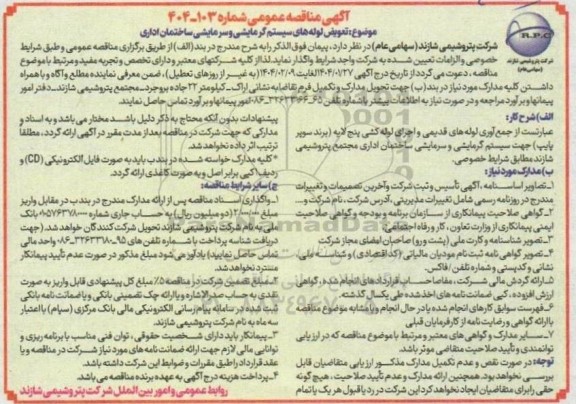 آگهی مناقصه عمومی شماره ۱۰۳-۴۰۴
موضوع: تعویض لوله‌های سیستم گرمایشی و سرمایشی ساختمان اداری
R.P.C
شرکت پتروشیمی شازند
(سهامی عام)
شرکت پتروشیمی شازند (سهامی عام) در نظر دارد، پیمان فوق الذکر را به شرح مندرج در بند (الف) از طریق برگزاری مناقصه عمومی و طبق شرایط
خصوصی و الزامات تعیین شده به شرکت واجد شرایط واگذار نماید. لذا از کلیه شرکتهای معتبر و دارای تخصص و تجربه مفید و مرتبط با موضوع
مناقصه، دعوت می گردد از تاریخ درج آگهی ۱۴۰۴/۰۱/۲۷ لغایت ۱۴۰۴/۰۲/۰۹ (به غیر از روزهای تعطیل)، ضمن معرفی نماینده مطلع و آگاه و با همراه
داشتن کلیه مدارک مورد نیاز در بند (ب) جهت تحویل مدارک و تکمیل فرم تقاضا به نشانی اراک-کیلومتر ۲۲ جاده بروجرد-مجتمع پتروشیمی شازند، دفتر امور
پیمانها و برآورد مراجعه و در صورت نیاز به اطلاعات بیشتر با شماره تلفن ۶۵-۳۲۶۳۳۱۶۶-۰۸۶ امور پیمانها و برآورد تماس حاصل نمایند.
الف) شرح کار:
عبارتست از جمع آوری لوله های قدیمی و اجرای لوله کشی پنج لایه (برند سوپر
پایپ) جهت سیستم گرمایشی و سرمایشی ساختمان اداری مجتمع پتروشیمی
شازند مطابق شرایط خصوصی.
ب) مدارک مورد نیاز:
۱-تصاویر اساسنامه، آگهی تأسیس و ثبت شرکت و آخرین تصمیمات و تغییرات
مندرج در روزنامه رسمی شامل تغییرات مدیریتی، آدرس شرکت، نام شرکت و...
۲-گواهی صلاحیت پیمانکاری از سازمان برنامه و بودجه و گواهی صلاحیت
ایمنی پیمانکاری از وزارت تعاون، کار و رفاه اجتماعی
۳-تصویر شناسنامه و کارت ملی (پشت و رو) صاحبان امضای مجاز شرکت
۴-تصویر گواهی نامه ثبت نام مودیان مالیاتی (کد اقتصادی) و شناسه ملی،
نشانی و کدپستی و شماره تلفن/فاکس.
۵-ارائه گردش مالی شرکت، مفاصاحساب قراردادهای انجام شده، گواهی
ارزش افزوده، کپی ضمانت نامه های اخذ شده طی یکسال گذشته.
۶-فهرست سوابق کارهای انجام شده یا در حال انجام با مشابه موضوع مناقصه
با ارائه گواهی و رضایت نامه از کارفرمایان قبلی
۷-سایر مدارک و گواهی های معتبر و مرتبط با موضوع مناقصه که در ارزیابی
توانمندی و تأیید صلاحیت متقاضی موثر باشد.
توجه: در صورت نقص و عدم تکمیل مدارک مذکور ارزیابی متقاضیان قابل
بررسی نخواهد بود. همچنین ارائه مدارک و عدم تأیید صلاحیت، هیچ گونه
حقی را برای متقاضیان ایجاد نخواهد کرد این شرکت در رد یا قبول هر یک یا تمام
پیشنهادات بدون آنکه محتاج به ذکر دلیل باشد مختار می باشد و به اسناد و
مدارکی که جهت شرکت در مناقصه بعد از مدت مقرر در آگهی ارائه گردد، مطلقا
ترتیب اثر داده نخواهد شد.
*کلیه مدارک خواسته شده در بند ب باید به صورت فایل الکترونیکی (CD) و
ردیف کپی برابر اصل و به صورت کاغذی ارائه گردد.
ج) سایر شرایط مناقصه:
۱-واگذاری اسناد مناقصه پس از ارائه مدارک مندرج در بند ب در مقابل واریز
مبلغ ۲/۰۰۰/۰۰۰ (دو میلیون ریال) به حساب جاری شماره بانک
ملی به نام شرکت پتروشیمی شازند تحویل شرکت کنندگان خواهد شد. (جهت
دریافت شناسه پرداخت با شماره تلفن های ۹۵-۳۲۶۳۳۱۸۰-۰۸۶ واحد مالی
تماس حاصل نمایید) یادآور می شود مبلغ مذکور در صورت عدم تأیید پیمانکار
مسترد نخواهد شد.
۲-مبلغ تضمین شرکت در مناقصه ۵٪ مبلغ کل پیشنهادی قابل واریز به صورت
نقدی به حساب مورد اشاره و یا ارائه چک تضمینی بانکی و یا ضمانت نامه بانکی
ثبت شده در سامانه پیام رسانی الکترونیکی مالی بانک مرکزی (سپام) با اعتبار
سه ماه به نام شرکت پتروشیمی شازند.
۳-پیمانکار باید دارای شخصیت حقوقی، توان فنی مناسب با برنامه ریزی و
توانایی مالی لازم جهت ارائه ضمانت نامه های مورد نیاز شرکت در مناقصه و یا
عقد قرارداد را طبق مقررات و ضوابط این شرکت داشته باشد.
۴-پرداخت هزینه درج آگهی به عهده برنده مناقصه می باشد.
روابط عمومی و امور بین الملل شرکت پتروشیمی شازند